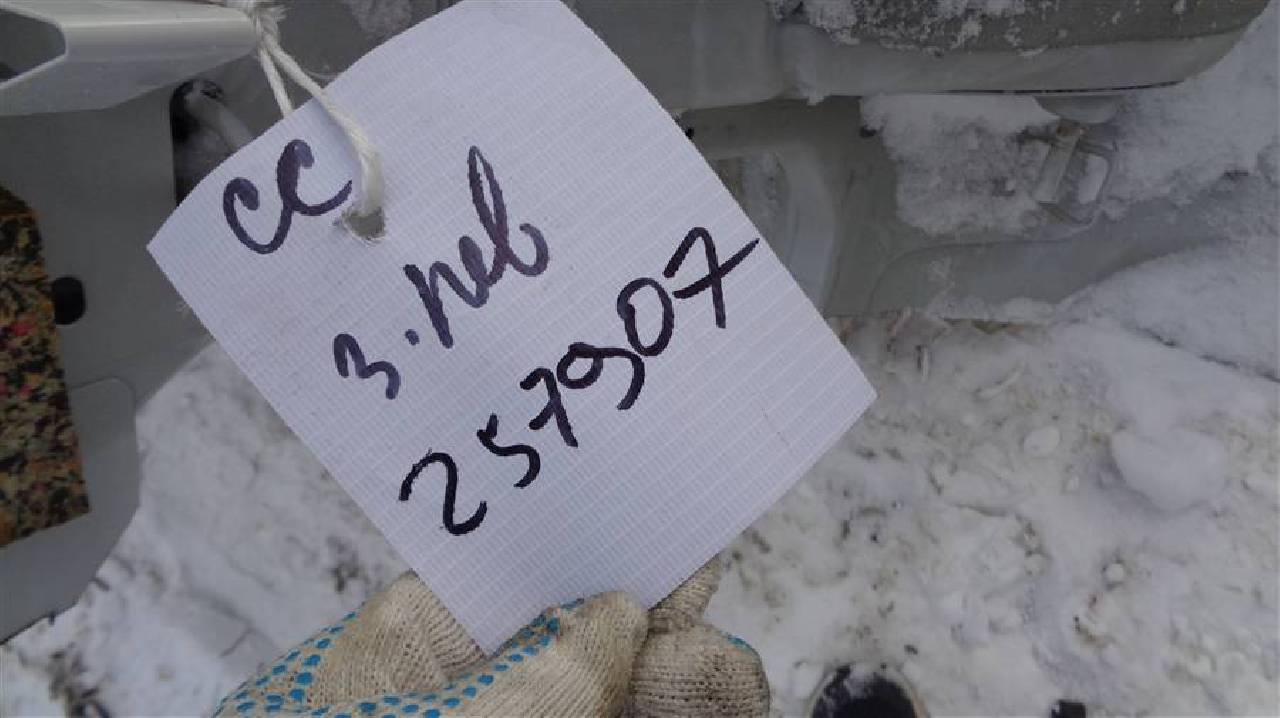 СС
З.лев
257907